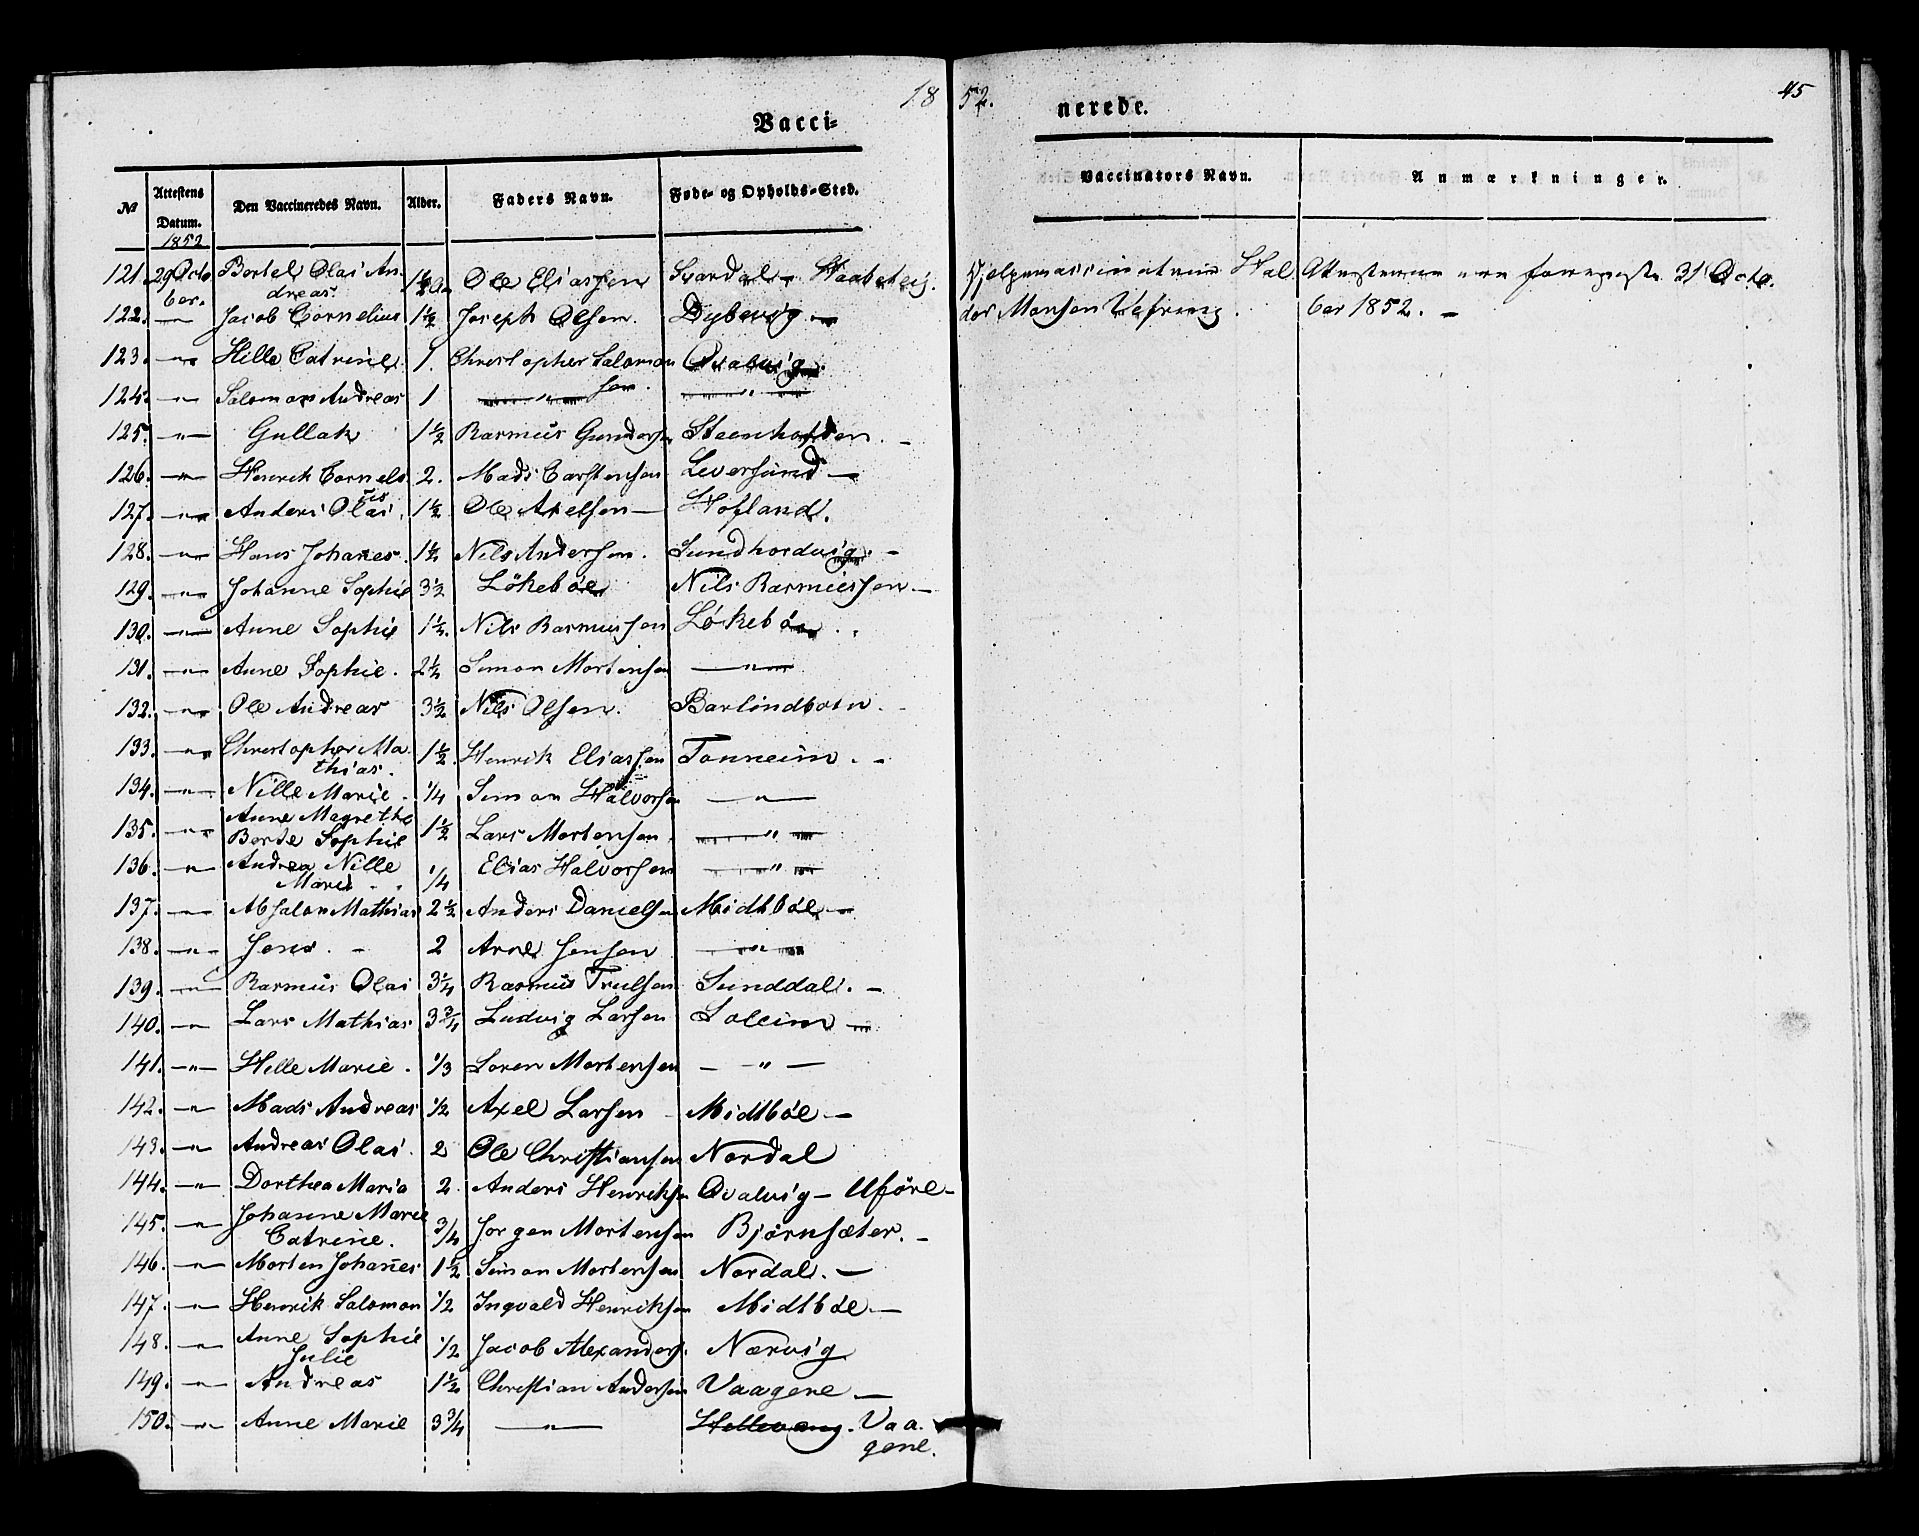 18 52.
45
Vacci= nerede.
№ Attestens Datum. Den Vaccineredes Navn. Alder. Faders Navn. Føde- og Opholds-Sted. Vaccinators Navn. Anmærkninger.
1852
121. 29 Octo Bertel Olai An- Ole Eliassen Svardal
ber. dreas.
Hal Attesterne 31 Octo
122. — Jacob Cornelius 1½ Joseph Olsen. Dybevig —
dor Monsen Vefring. ber 1852. —
123. —"— Hille Catrine 1. Christopher Salomon Qvalvig
sen.
124. —"— Salomon Andreas 1 —"— —"—
125. —"— Gullak 1½ Rasmus Gunders Steenhovden. —
126. —"— Henrik Cornels 2. Mads Carstensen Leversund —
127. —"— Anders Olai 1½ Ole Axelsen — Hofland.
128. —"— Hans Johanes. 1½ Nils Andersen. Sundhordvig. —
129. —"— Johanne Sophie 3½ Løkebøe Nils Rasmussen —
130. —"— Anne Sophie 1½. Nils Rasmussen Løkebøe
131. —"— Anne Sophie. 2½ Simon Mortensen —"—
132. —"— Ole Andreas 3½ Nils Olsen. Barlindbotn.
133. —"— Christopher Ma 1½ Henrik Eliassen Tonneim. —
thias.
134. —"— Nille Marie. ¼ Simon Halvorsen —"—
Anne Magrethe
135. —"— Berte Sophie 1½ Lars Mortensen. —"—
136. —"— Andrea Nille ¼ Elias Halvorsen —"—
Marie
137. —"— Absalon Mathias 2½ Anders Danielsen Midtbøe —
138. —"— Jens. — 2 Arne Jensen —"—
139. —"— Rasmus Olai 3¼ Rasmus Trulsen Sunddal. —
140. —"— Lars Mathias 3¾ Ludvig Larsen Soleim —
141. —"— Hille Marie. ⅓ Soren Mortensen —"—
142. —"— Mads Andreas ½ Axel Larsen Midtbøe —
143. —"— Andreas Olai. 2 Ole Christiansen Nordal
144. —"— Dorthea Maria 2 Anders Henriksen Qvalvig — Uføre —
145. —"— Johanne Marie ¾ Jørgen Mortensen Bjørnsæter. —
Catrine.
146. —"— Morten Johannes 1½ Simon Mortensen Nordal. —
147. —"— Henrik Salomon ½ Ingvald Henriksen Midtbøe —
148. —"— Anne Sophie ½ Jacob Alexanders. Nærvig
Julie
149. —"— Andreas 1½ Christian Andersen Vaagene —
150. —"— Anne Marie 3¾ —"— Hellevang. Vaa-
gene.